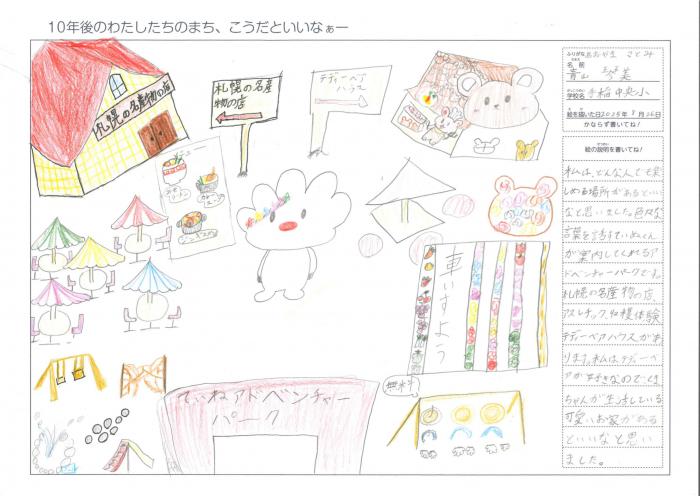 10年後のわたしたちのまち、こうだといいなぁー
札幌の名産物の店
札幌の名産
物の店
テディーベア
ハウス
車いすよう
無料
ていねアドベンチャー
パーク
ふりがな
さとみ
名前
青山
美
学校名
手稲中央小
絵を描いた日2025年
月26日
かならず書いてね!
絵の説明を書いてね!
私は、どんな人でも楽
しめる場所があるといい
なと思いました。色々な
言葉を話すていぬくん
が案内してくれるア
ドベンチャーパークです。
札幌の名産物の店、
アスレチック、
体験
テディーベアハウスがあ
ります。私は、テディーベ
アが好きなのでくま
ちゃんが生活している
可愛いお家がある
といいなと思い
ました。